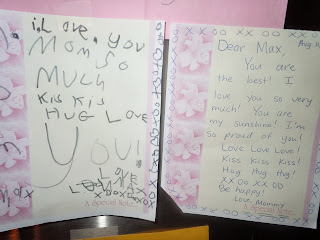 i L ove. you
Mom. So
Much
Kis Kis
HUG LOVE
y ou!
LOVE
A Special Note
Dear Max,
You are
the best! I
love you so very
much! You are
my sunshine! I'm
so proud of you!
Love Love Love!
Kiss Kiss Kiss!
Hug Hug Hug!
XX OO XX OO
Be happy!
Love, Mommy
A Special Note